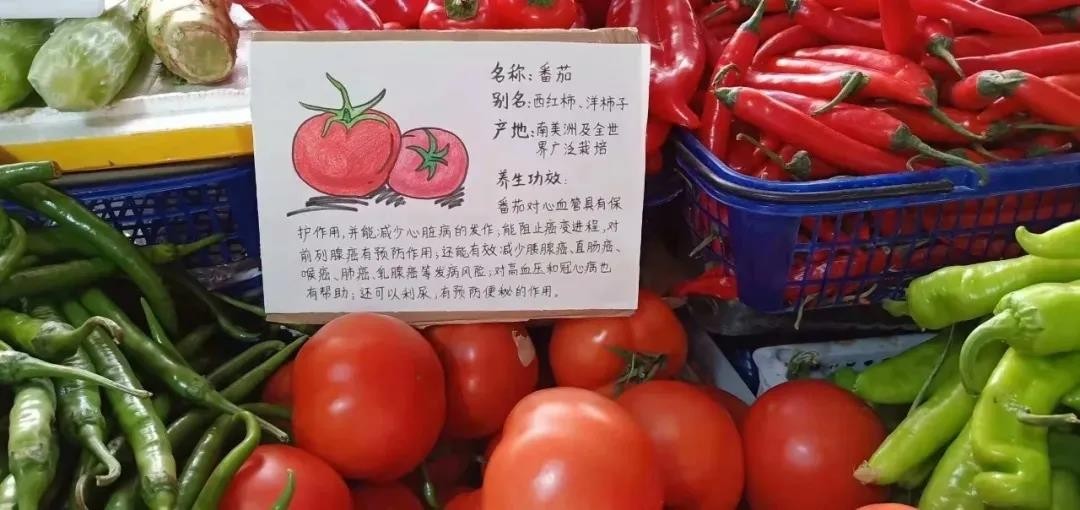 名称：番茄
别名：西红柿、洋柿子
产地：南美洲及全世
界广泛栽培
养生功效：
番茄对心血管具有保
护作用，并能减少心脏病的发作，能阻止癌变进程，对
前列腺癌有预防作用，还能有效减少胰腺癌、直肠癌、
喉癌、肺癌、乳腺癌等发病风险；对高血压和冠心病也
有帮助；还可以利尿，有预防便秘的作用。